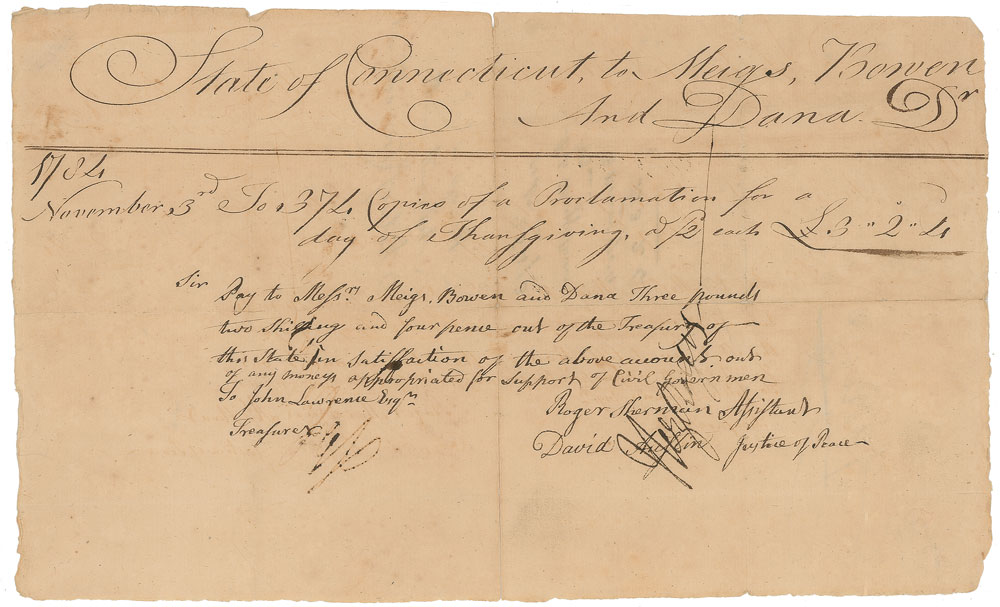 State of Connecticut, to Meigs, Bowen
And Dana. Dr
1784
November 3rd To 374 Copies of a Proclamation for a
day of Thanksgiving, @ /2 each £3 " 2 " 4
Sir Pay to Messrs Meigs, Bowen and Dana Three pounds
two Shillings and four pence out of the Treasury of
this State in Satisfaction of the above account out
of any moneys appropriated for Support of Civil Governmen
To John Lawrence Esqr
Treasurer
Roger Sherman Assistant
David Austin Justice of Peace